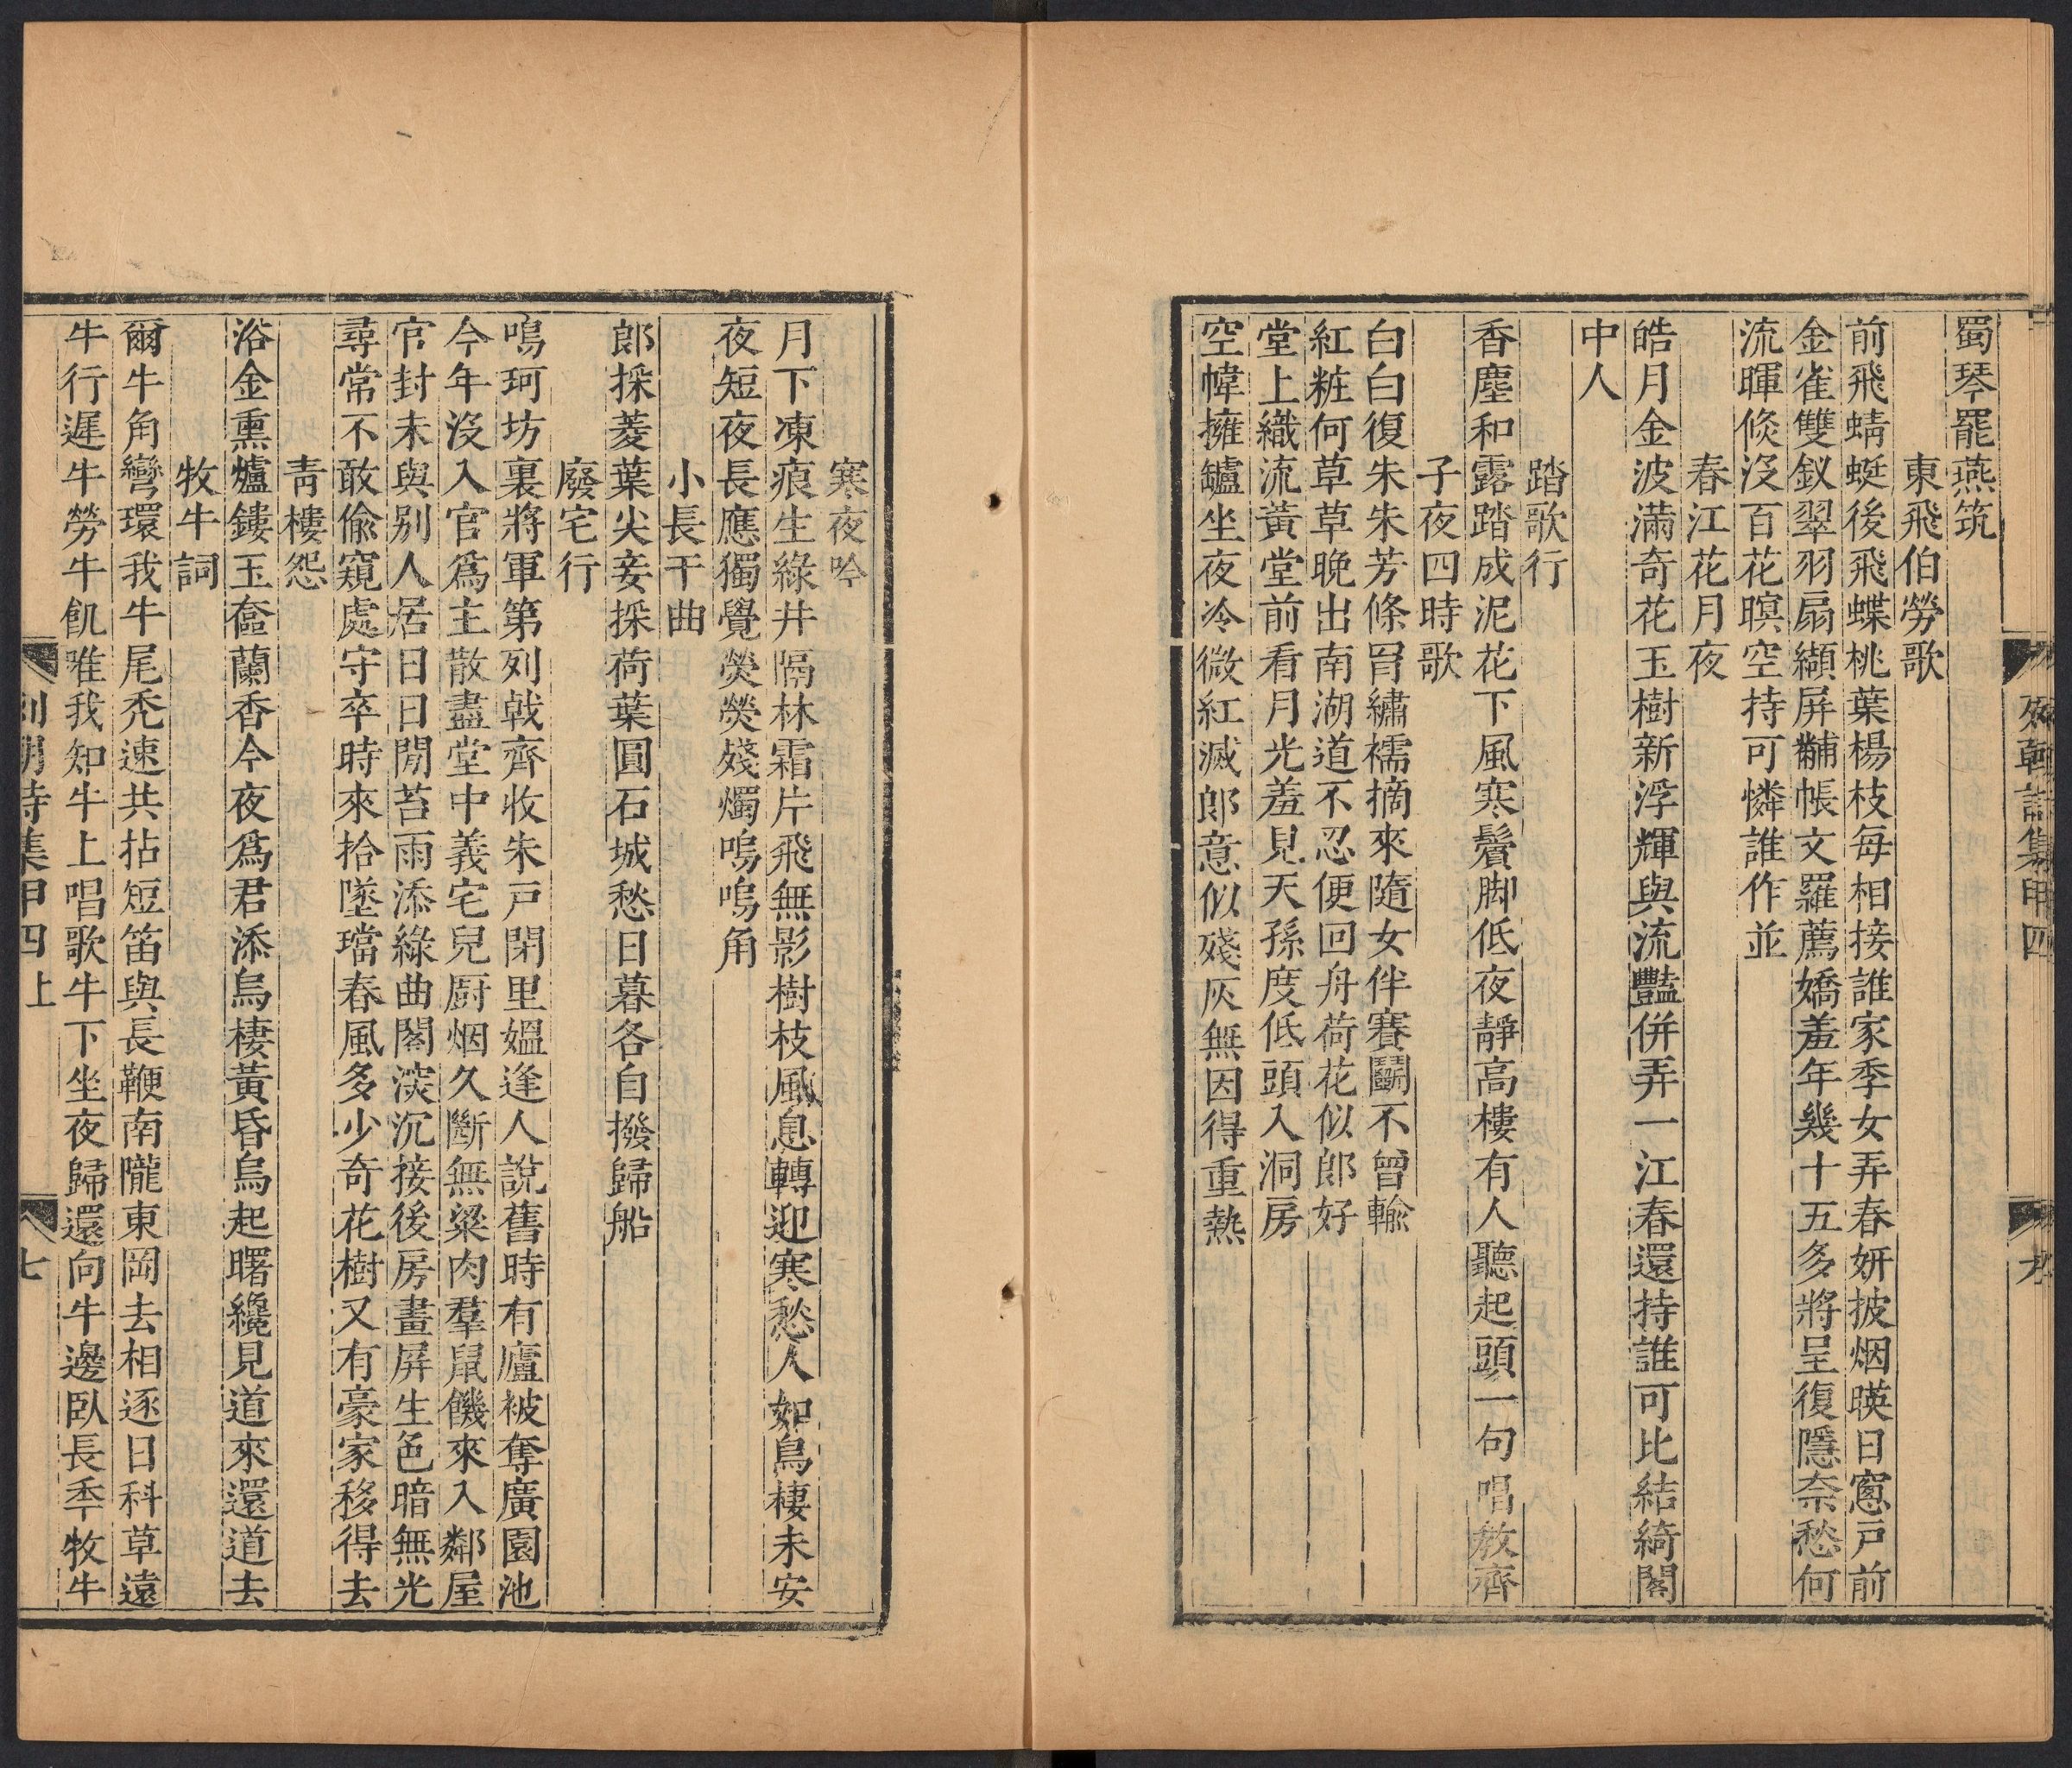 蜀琴罷燕筑
東飛伯勞歌
前飛蜻蜓後飛蝶桃葉楊枝每相接誰家季女弄春妍披烟暎日窻戸前
金雀雙釵翠羽扇纈屏黼帳文羅薦嬌羞年幾十五多將呈復隱奈愁何
流暉倐沒百花暝空持可憐誰作並
春江花月夜
皓月金波滿奇花玉樹新浮輝與流豔併弄一江春還持誰可比結綺閣
中人
踏歌行
香塵和露踏成泥花下風寒鬢脚低夜靜高樓有人聽起頭一句唱教齊
子夜四時歌
白白復朱朱芳條罥繡襦摘來隨女伴賽鬭不曾輸
紅粧何草草晚出南湖道不忍便回舟荷花似郎好
堂上織流黃堂前看月光羞見天孫度低頭入洞房
空幃擁鑪坐夜冷微紅滅郎意似殘灰無因得重熱
寒夜吟
月下凍痕生綠井隔林霜片飛無影樹枝風息轉迎寒愁人如鳥棲未安
夜短夜長應獨覺熒熒殘燭嗚嗚角
小長干曲
郎採菱葉尖妾採荷葉圓石城愁日暮各自撥歸船
廢宅行
鳴珂坊裏將軍第列戟齊收朱戸閉里媼逢人說舊時有廬被奪廣園池
今年沒入官爲主散盡堂中義宅兒厨烟久斷無粱肉羣鼠饑來入鄰屋
官封未與别人居日日閒苔雨添綠曲閣深沉接後房畫屏生色暗無光
尋常不敢偸窺處守卒時來拾墜璫春風多少奇花樹又有豪家移得去
靑樓怨
浴金熏爐鏤玉奩蘭香今夜爲君添烏棲黃昏烏起曙纔見道來還道去
牧牛詞
爾牛角彎環我牛尾秃速共拈短笛與長鞭南隴東岡去相逐日科草遠
牛行遲牛勞牛飢唯我知牛上唱歌牛下坐夜歸還向牛邊臥長季牧牛
列朝詩集甲四上
七